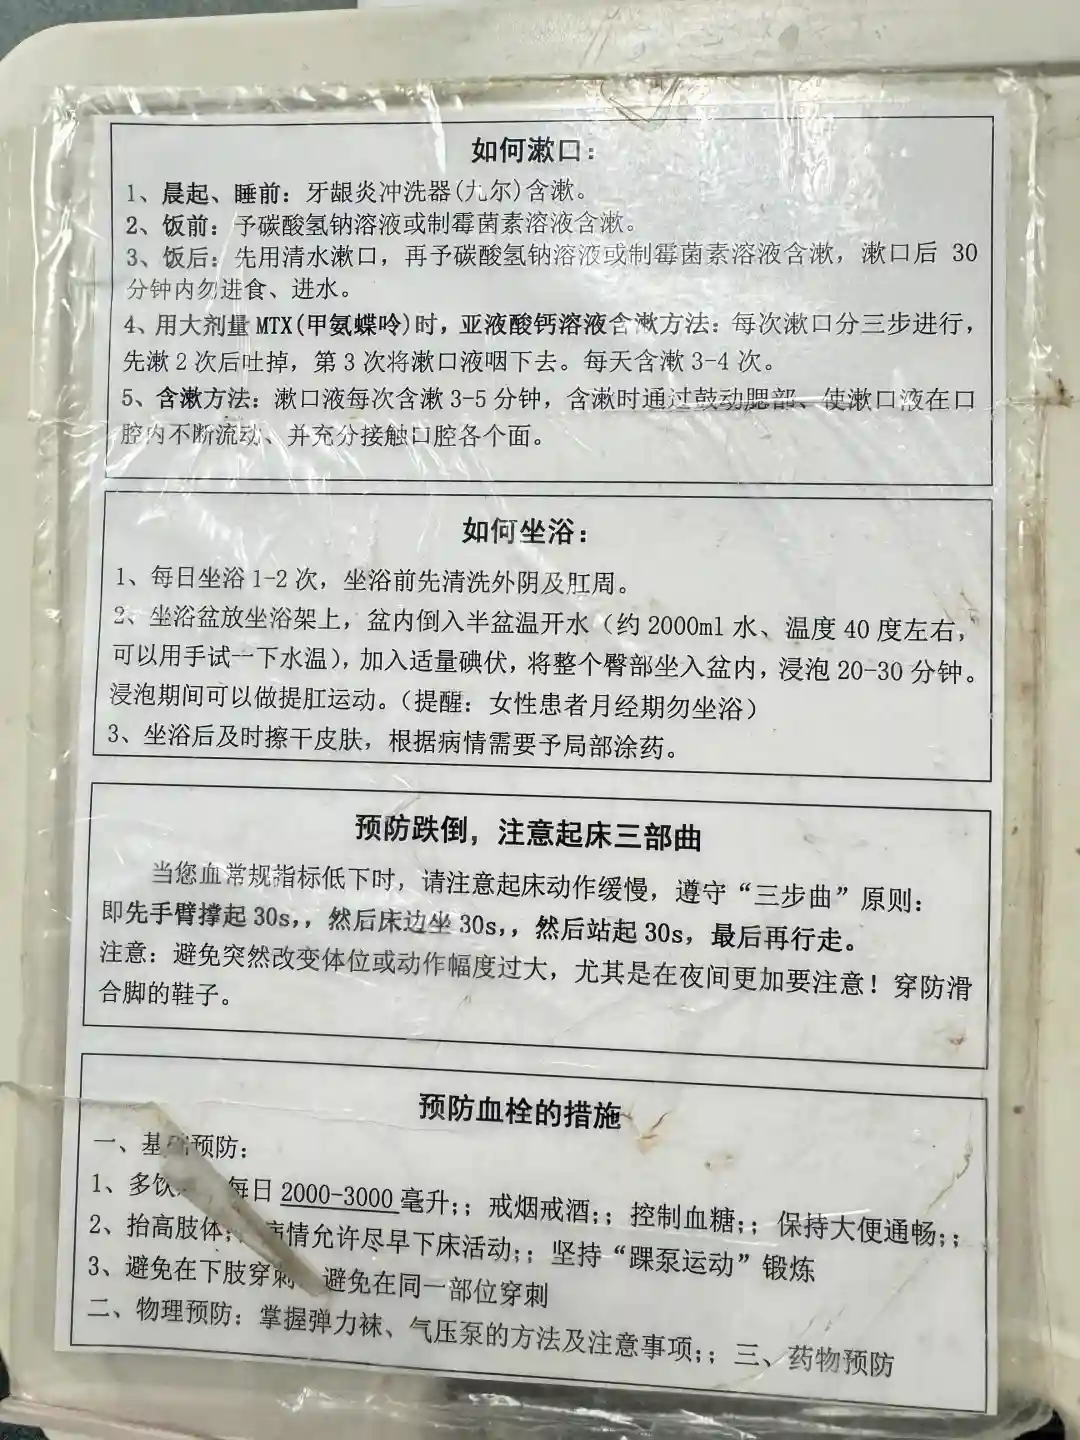 如何漱口：
1、晨起、睡前：牙龈炎冲洗器(九尔)含漱。
2、饭前：予碳酸氢钠溶液或制霉菌素溶液含漱。
3、饭后：先用清水漱口，再予碳酸氢钠溶液或制霉菌素溶液含漱，漱口后 30
分钟内勿进食、进水。
4、用大剂量 MTX(甲氨蝶呤)时，亚液酸钙溶液含漱方法：每次漱口分三步进行，
先漱 2 次后吐掉，第 3 次将漱口液咽下去。每天含漱 3-4 次。
5、含漱方法：漱口液每次含漱 3-5 分钟，含漱时通过鼓动腮部、使漱口液在口
腔内不断流动、并充分接触口腔各个面。
如何坐浴：
1、每日坐浴 1-2 次，坐浴前先清洗外阴及肛周。
2、坐浴盆放坐浴架上，盆内倒入半盆温开水（约 2000ml 水、温度 40 度左右，
可以用手试一下水温），加入适量碘伏，将整个臀部坐入盆内，浸泡 20-30 分钟。
浸泡期间可以做提肛运动。（提醒：女性患者月经期勿坐浴）
3、坐浴后及时擦干皮肤，根据病情需要予局部涂药。
预防跌倒，注意起床三部曲
当您血常规指标低下时，请注意起床动作缓慢，遵守“三步曲”原则：
即先手臂撑起 30s,，然后床边坐 30s,，然后站起 30s，最后再行走。
注意：避免突然改变体位或动作幅度过大，尤其是在夜间更加要注意！穿防滑
合脚的鞋子。
预防血栓的措施
一、基 预防：
1、多饮 每日 2000-3000 毫升；；戒烟戒酒；；控制血糖；；保持大便通畅；；
2、抬高肢体； 情允许尽早下床活动；；坚持“踝泵运动”锻炼
3、避免在下肢穿刺 避免在同一部位穿刺
二、物理预防：掌握弹力袜、气压泵的方法及注意事项；；三、药物预防